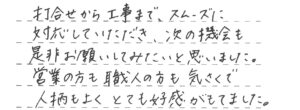 打合せから工事まで、スムーズに
対応していただき、次の機会も
是非お願いしてみたいと思いました。
営業の方も職人の方も気さくで
人柄もよくとても好感がもてました。